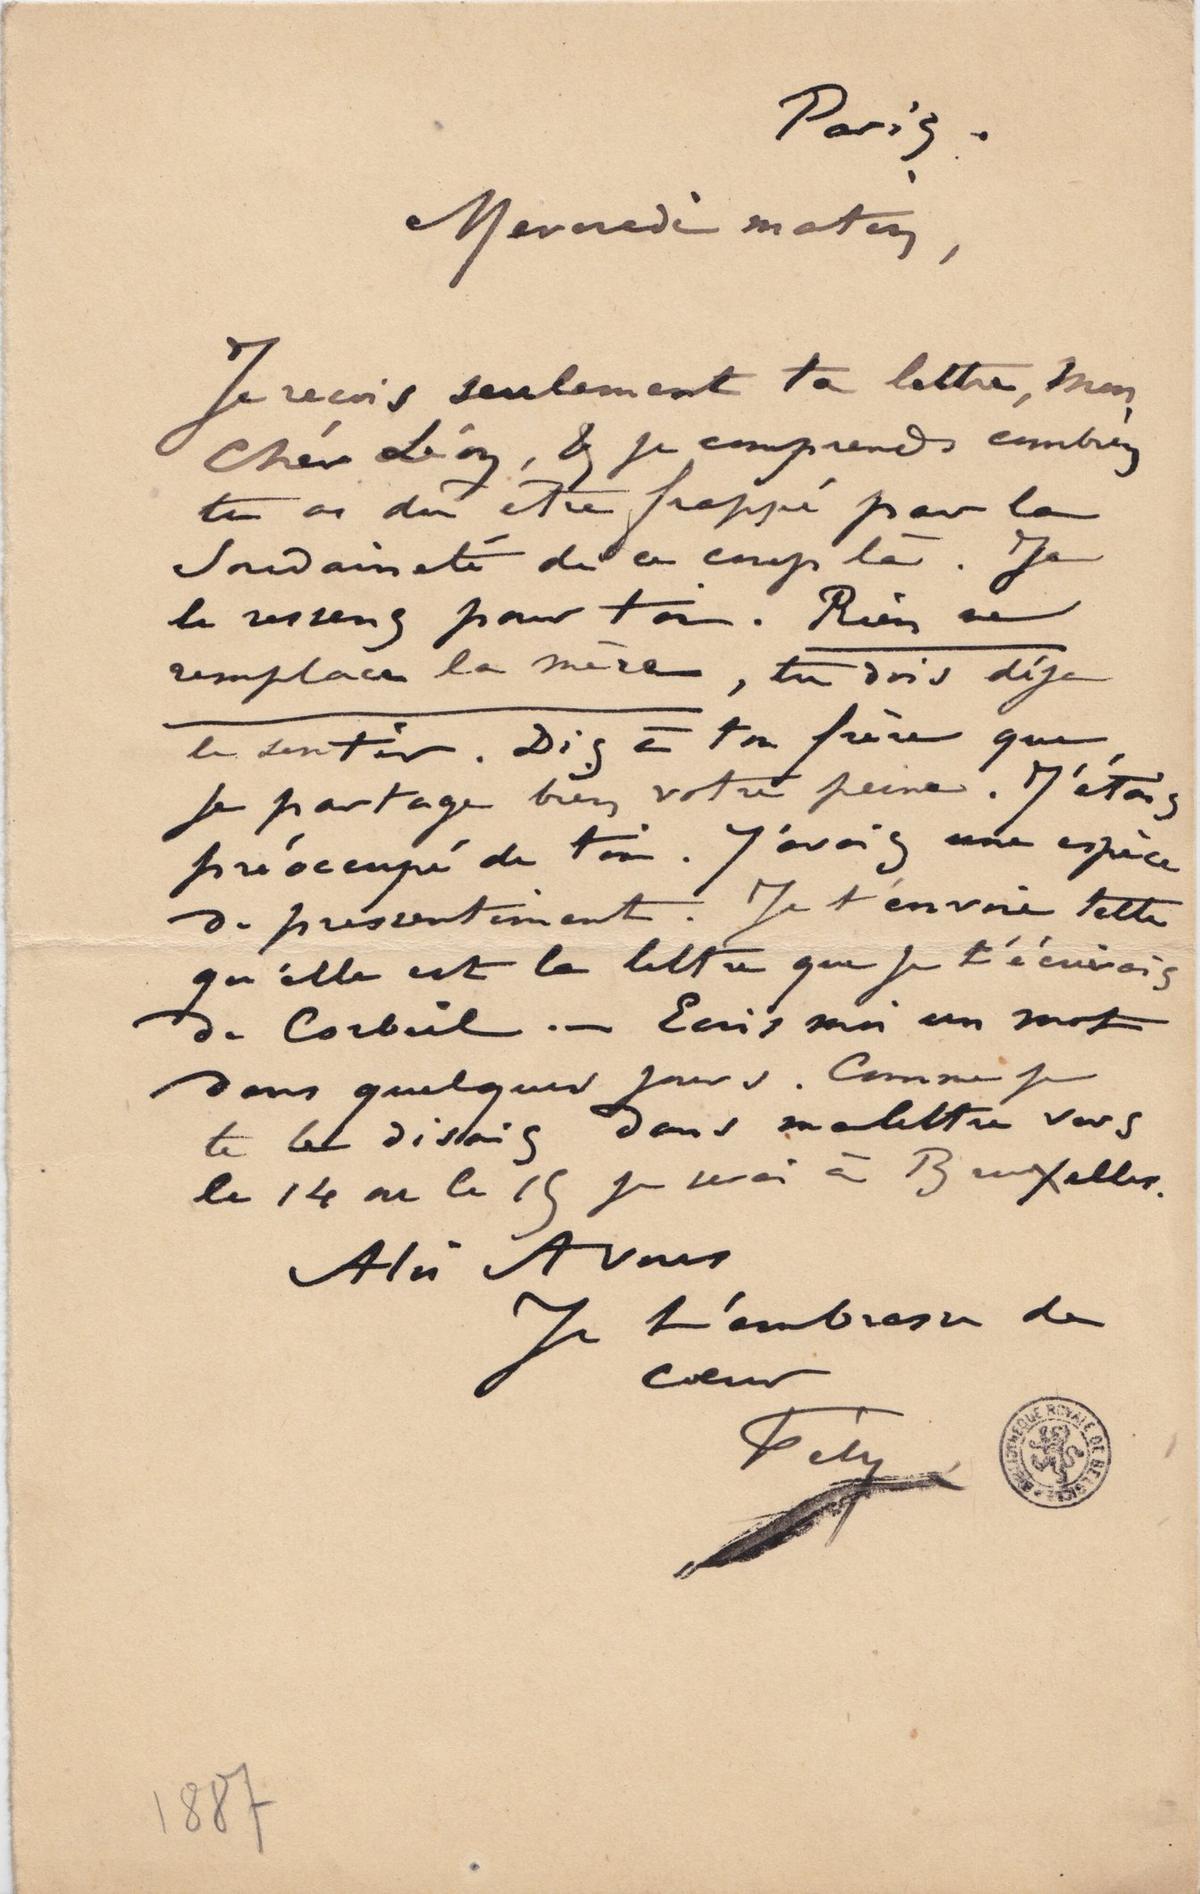 Paris.
Mercredi matin,
Je reçois seulement ta lettre, mon
Cher Léon, & je comprends combien
tu as dû être frappé par la
Soudaineté de ce coup là. Je
le ressens pour toi. Rien ne
remplace la mère, tu dois déja
le sentir. Dis à ton frère que
je partage bien votre peine. J'étais
préoccupé de toi. J'avais une espèce
de pressentiment. Je t'envoie telle
qu'elle est la lettre que je t'écrivais
de Corbeil. — Ecris moi un mot
dans quelques jours. Comme je
te le disais dans ma lettre vers
le 14 ou le 15 je serai à Bruxelles.
A toi A vous
Je t'embrasse de
cœur
Fély
BIBLIOTHÈQUE ROYALE DE BELGIQUE
1887